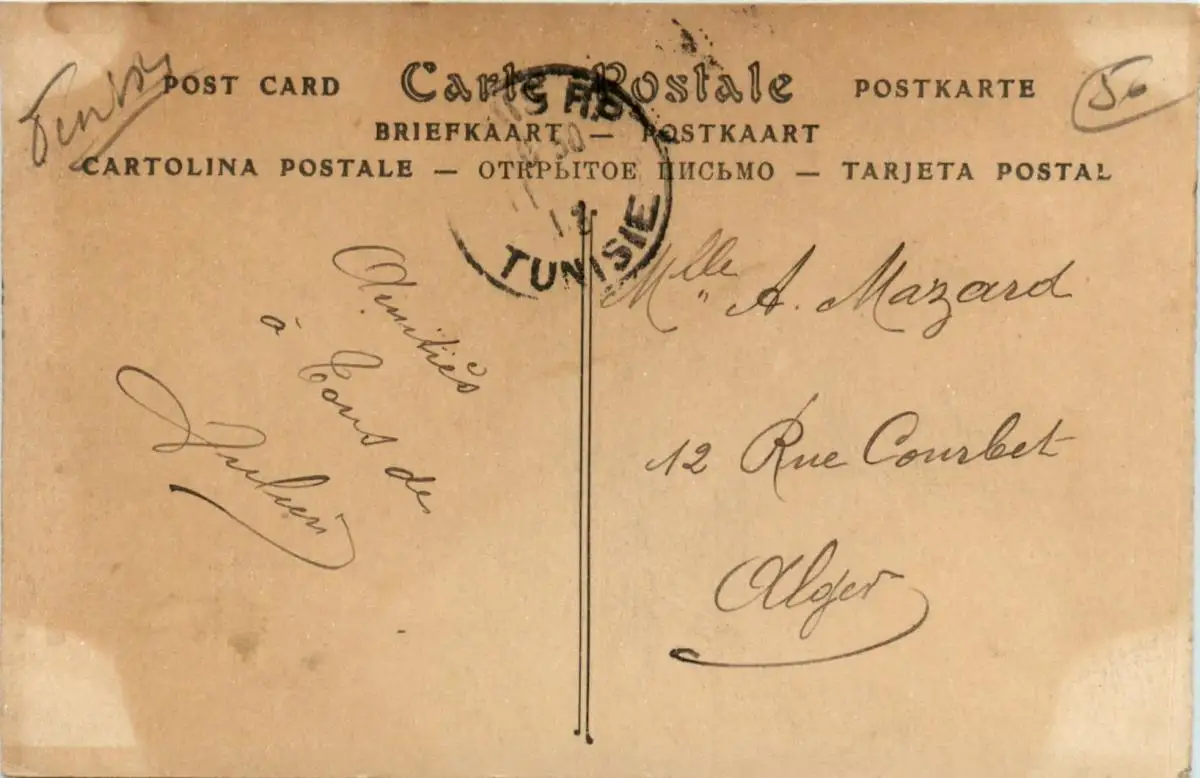 POST CARD Carte Postale POSTKARTE
BRIEFKAART — POSTKAART
CARTOLINA POSTALE — ОТКРЫТОЕ ПИСЬМО — TARJETA POSTAL
TUNISIE
Amitiés
à Tous de
Mlle A. Mazard
12 Rue Courbet
Alger